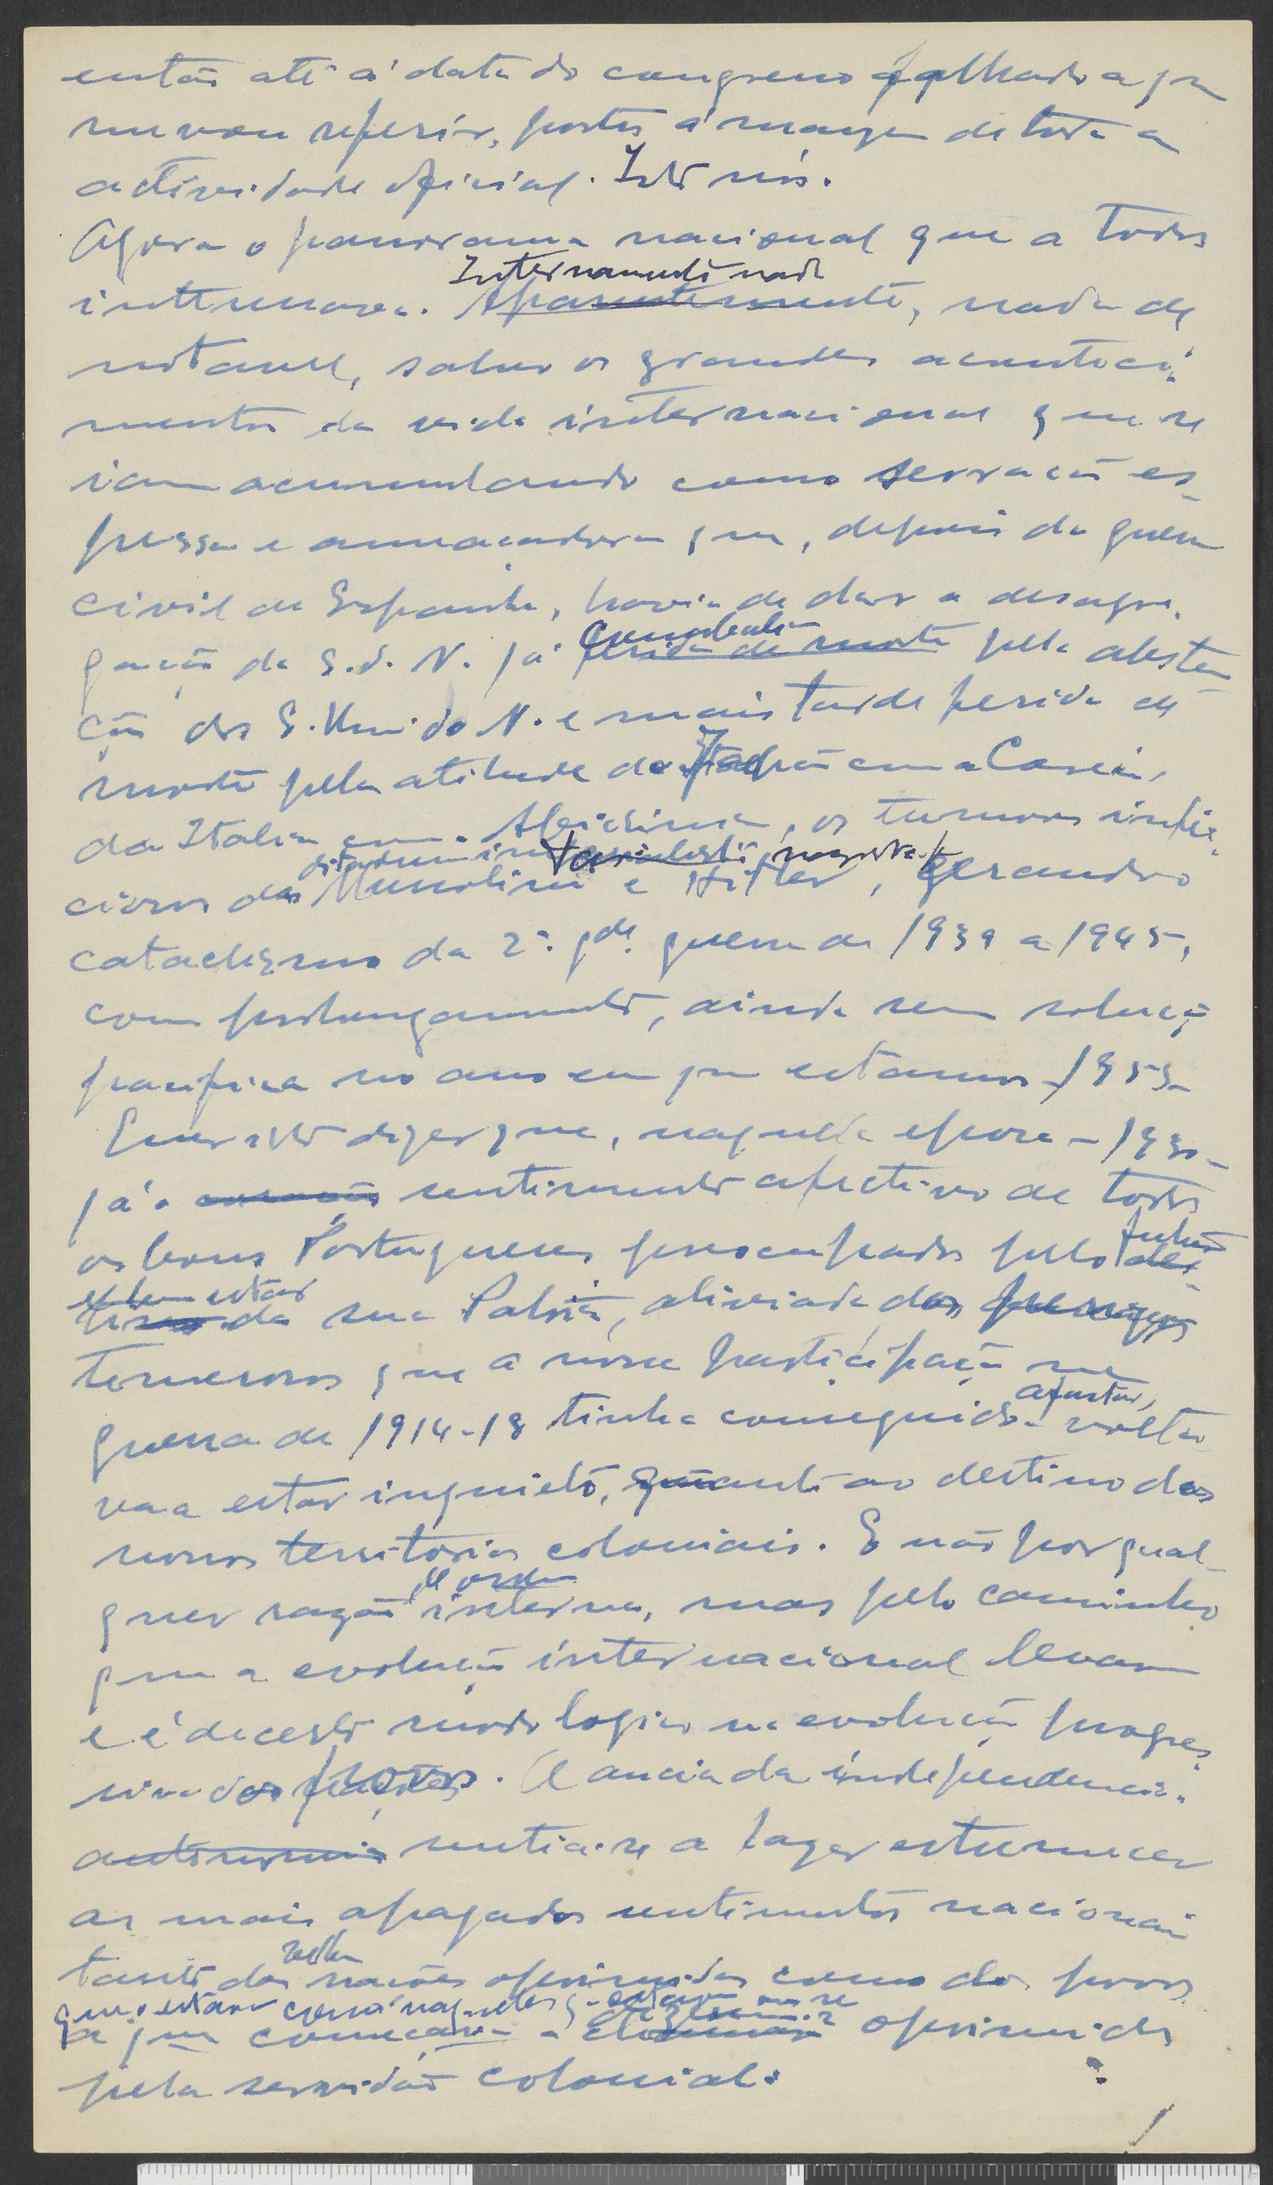 então até á data do congresso falhado a que
me vou referir, postos á margem de toda a
actividade oficial. Isto nós.
Agora o panorama nacional que a todos
interessava. Internamente nada
Aparentemente, nada de
notavel, salvo os grandes aconteci-
mentos da vida internacional que se
iam acumulando como serração es-
pessa e ameaçadora que, depois da guerra
civil de Espanha, havia de dar a desagre-
gação da S. d. N. já combalida
ferida de morte pela absten-
ção dos E. Unidos N. e mais tarde ferida de
morte pela atitude do Japão com a Coreia,
da Italia com a Abissinia, os tumores infec-
ciosos das
Mussolini e Hitler, gerando o
cataclismo da 2ª. gde. guerra de 1939 a 1945,
com prolongamento, ainda sem solução
pacifica no ano em que estamos - 1953 -
Quer isto dizer que, naquela epoca - 1930 -
já o coração sentimento afectivo de todos
os bons Portugueses preocupados pelo futuro
e bem estar
da sua Patria, aliviada dos presagios
temerosos que a nossa participação na
guerra de 1914-18 tinha conseguido afastar,
volta-
va a estar inquieto, quanto ao destino dos
nossos territorios coloniais. E não por qual-
quer razão de ordem
interna, mas pelo caminho
que a evolução internacional levava
e é de certo modo logico na evolução progres-
siva dos povos. A ancia da independencia
autonomia sentia-se a fazer estremecer
os mais apagados sentimentos nacionais
tanto das velhas
nações oprimidas como dos povos
que estavam como naqueles que
já que começava a oprimidos
pela servidão colonial.